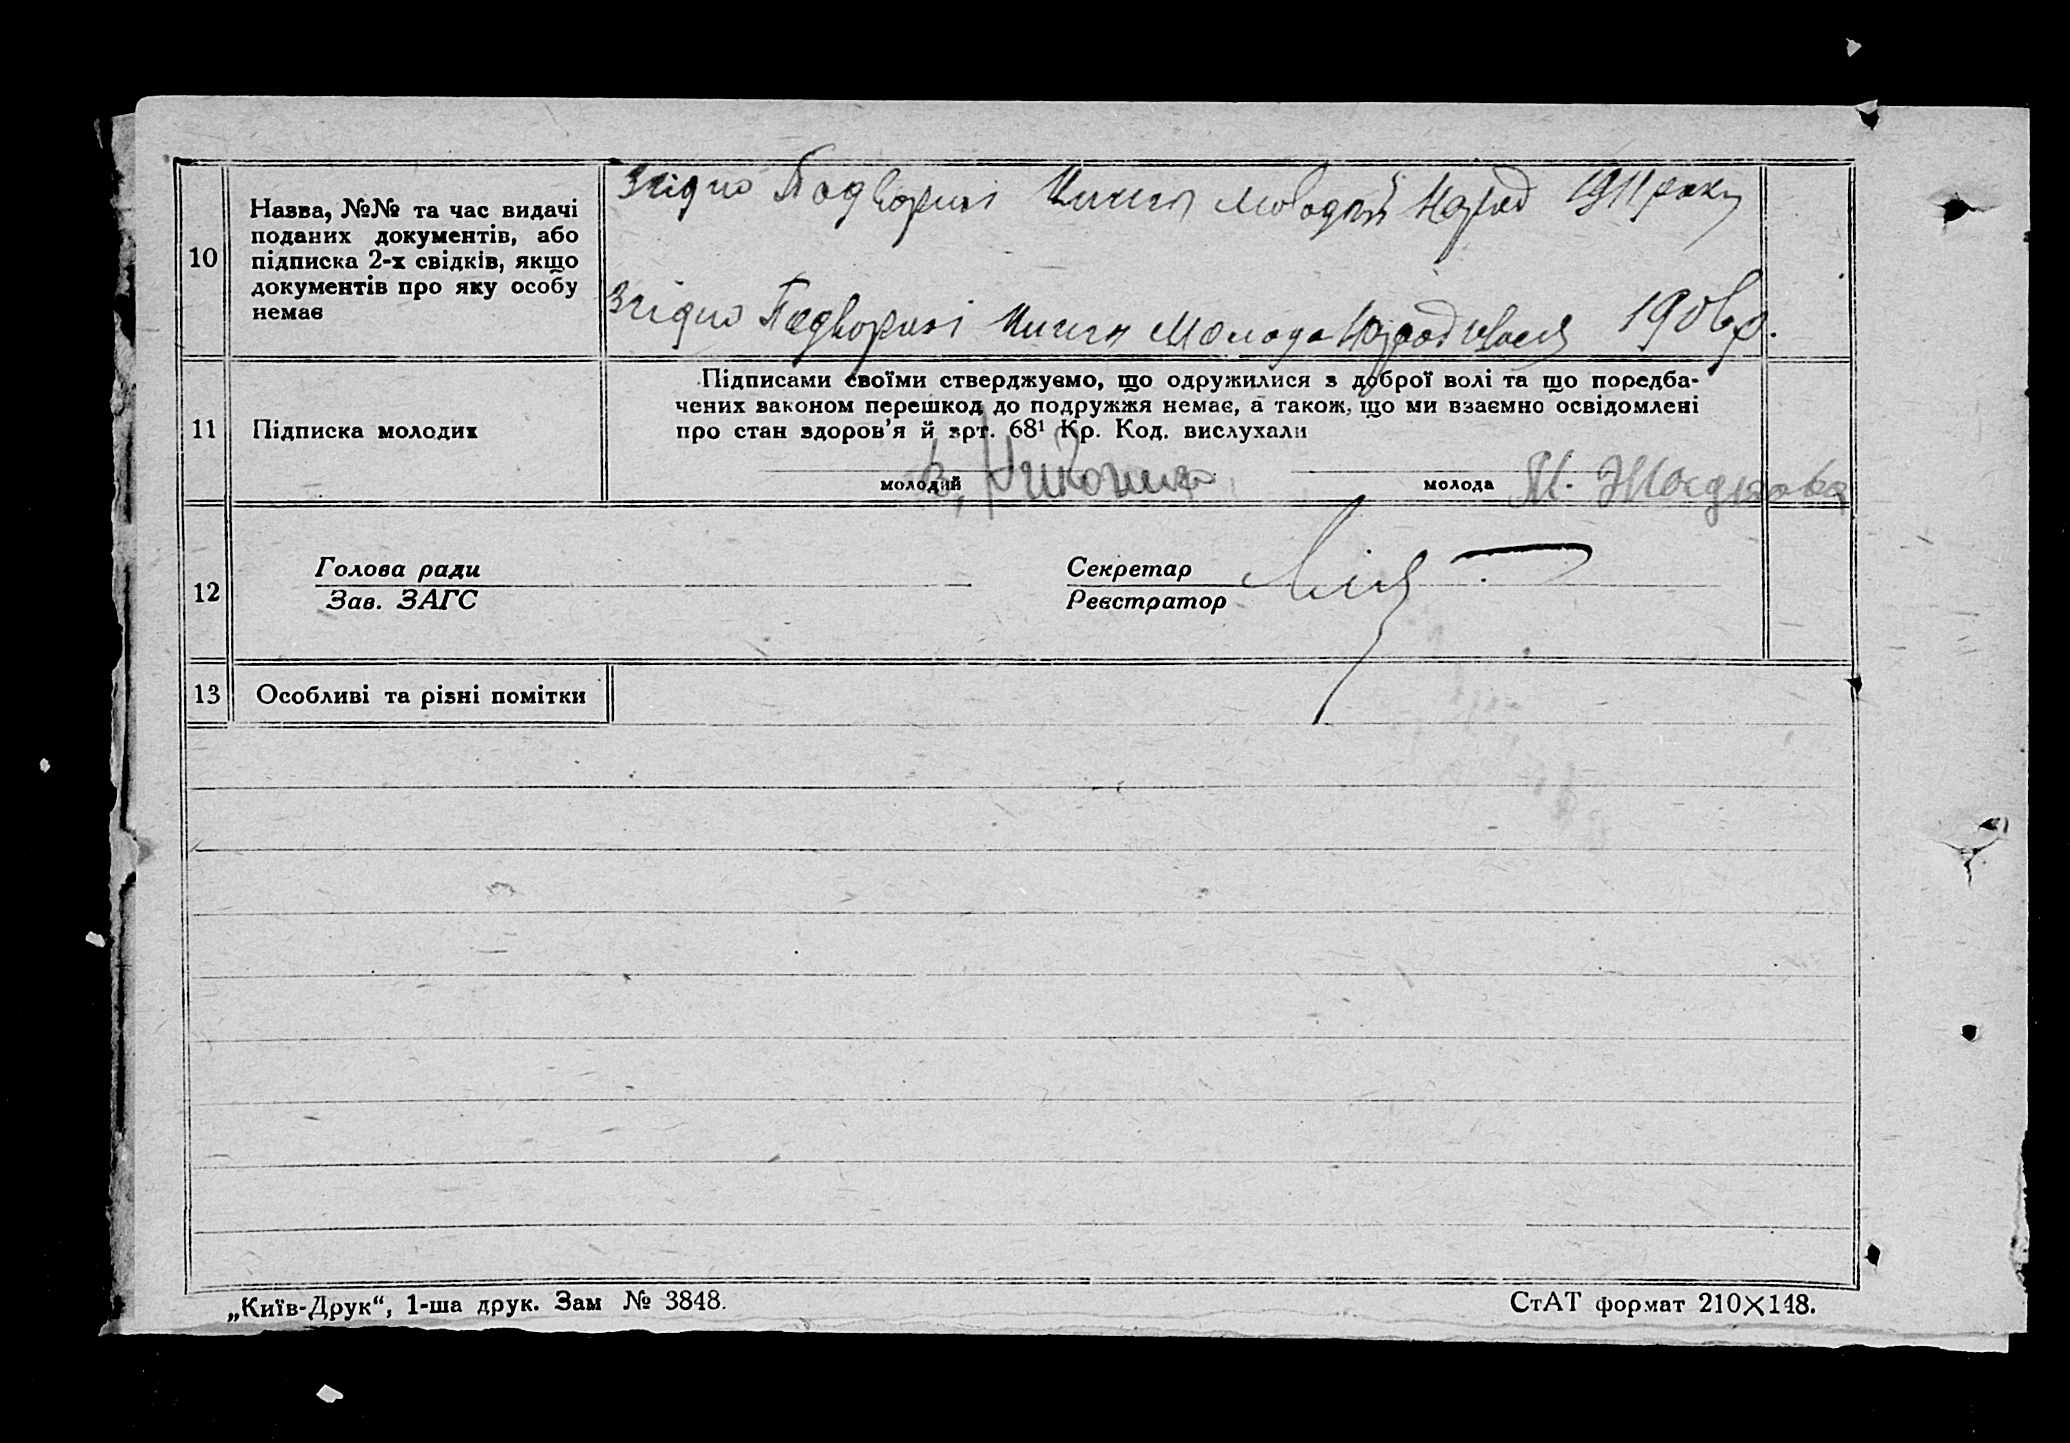 10
Назва, №№ та час видачі
поданих документів, або
підписка 2-х свідків, якщо
документів про яку особу
немає
Згідно Подворної Книги молодий Народ 1911 року
Згідно Подворної Книги Молода Народилася 1906 р.
11
Підписка молодих
Підписами своїми стверджуємо, що одружилися з доброї волі та що поредба-
чених законом перешкод до подружжя немає, а також, що ми взаємно освідомлені
про стан здоров'я й арт. 68¹ Кр. Код. вислухали
молодий
молода
12
Голова ради
Зав. ЗАГС
Секретар
Реєстратор
13
Особливі та різні помітки
„Київ-Друк“, 1-ша друк. Зам № 3848.
СтАТ формат 210×148.